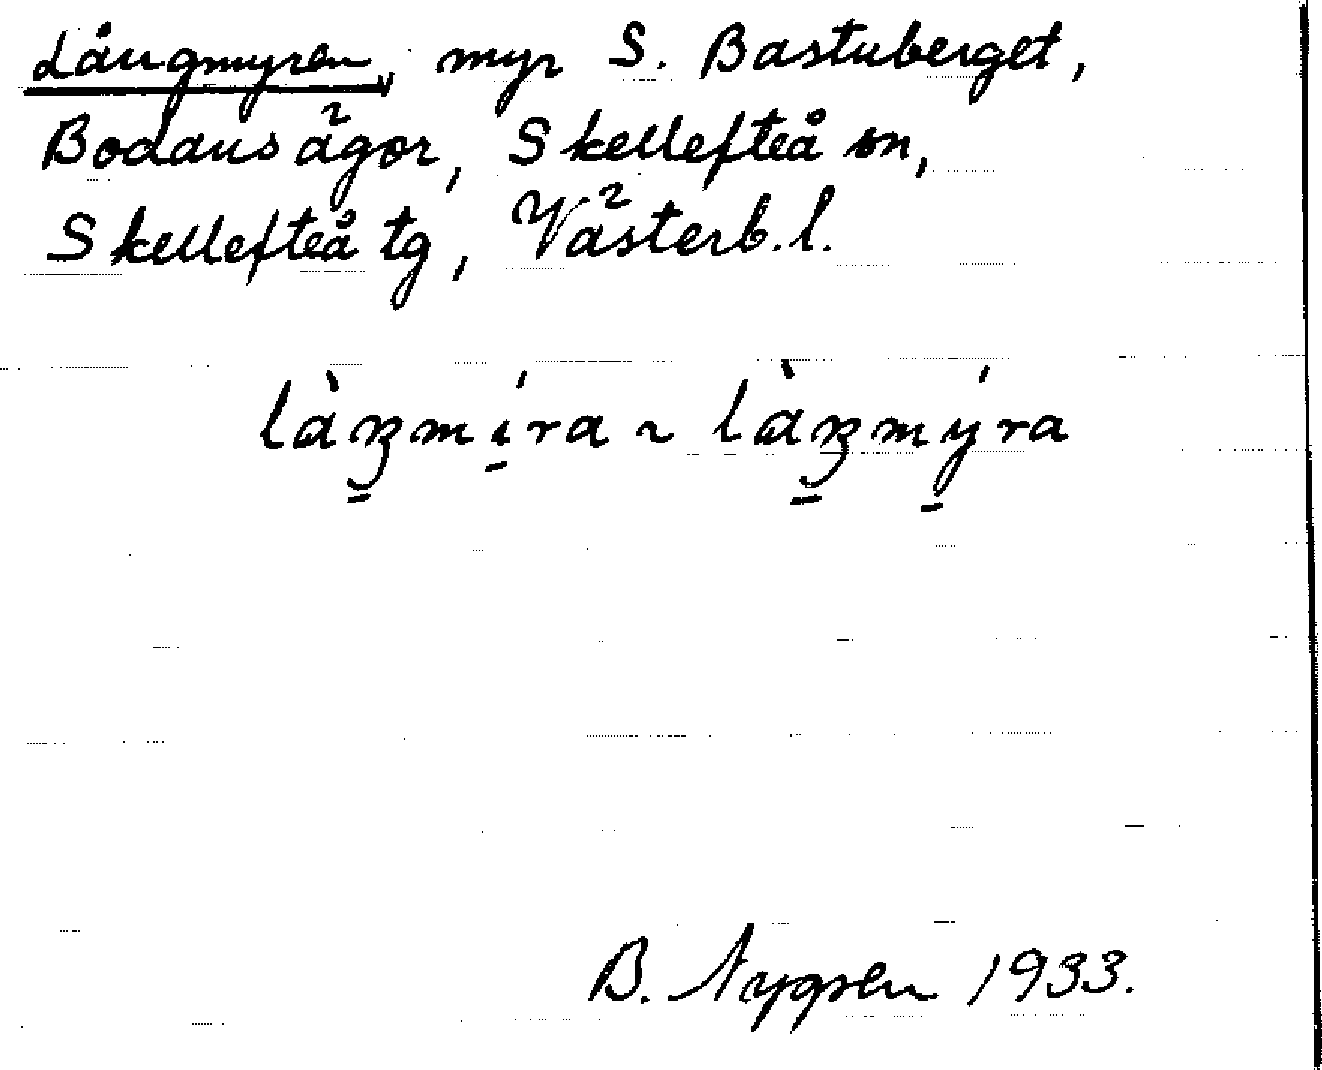 Långmyren, myr S. Bastuberget,
Bodans ägor, Skellefteå sn,
Skellefteå tg, Västerb. l.
làŋ̱mí̱ra ~ làŋ̱mý̱ra
B. Nygren 1933.